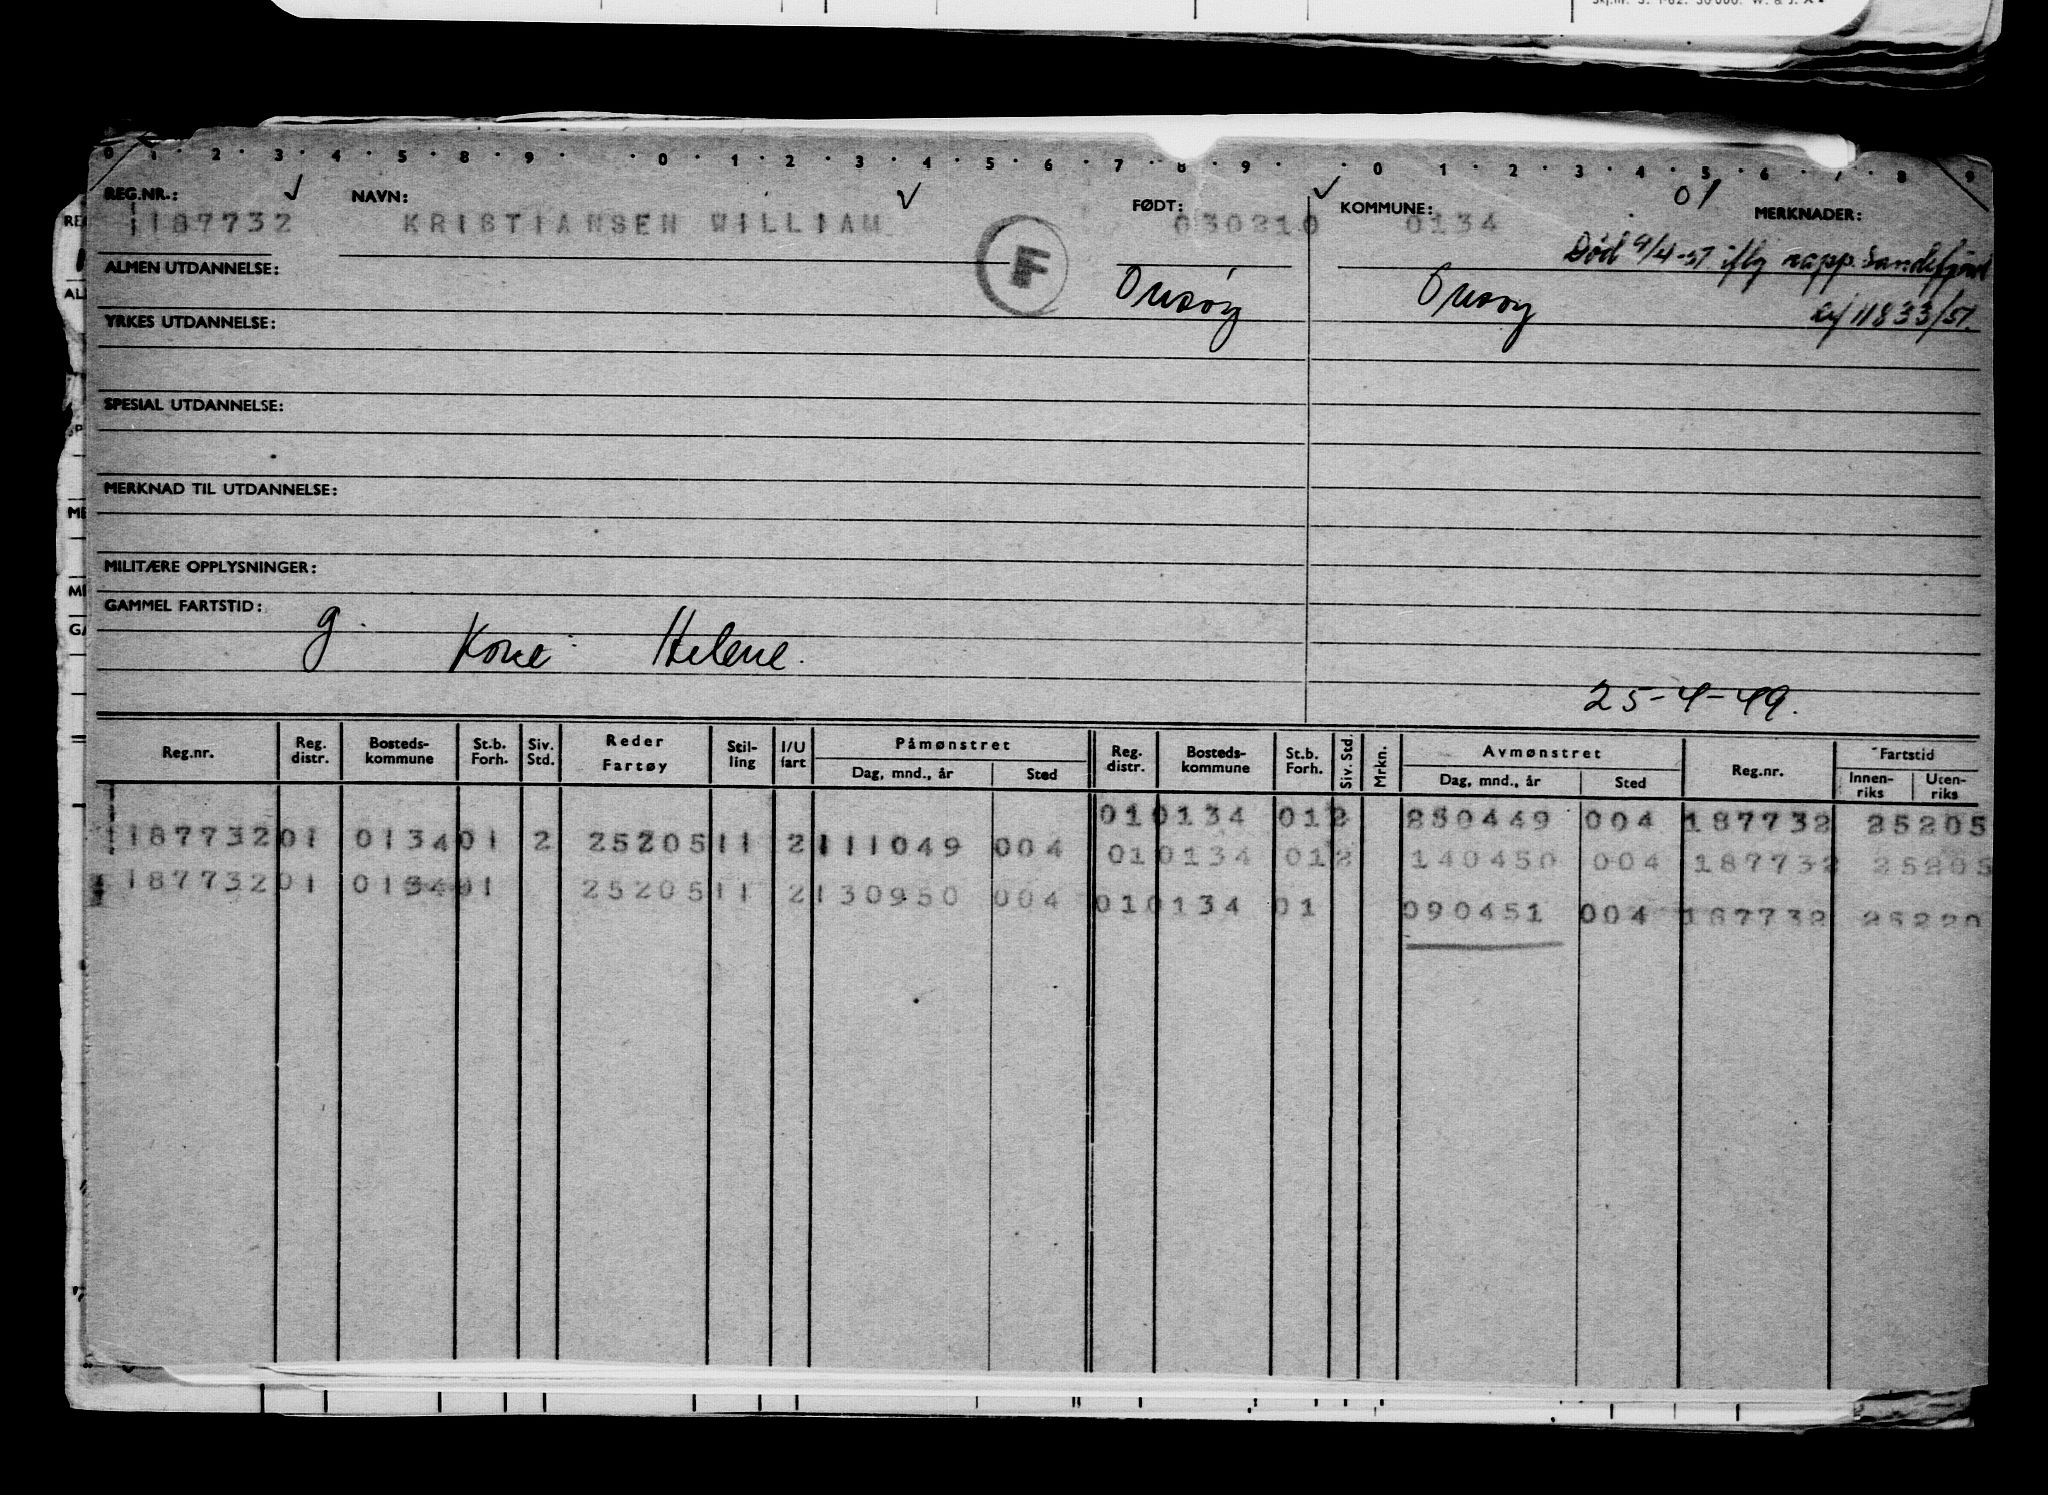 0 1 2 3 4 5 8 9 0 1 2 3 4 5 6 7 8 9 0 1 2 3 4 5 6 7 8 9
REG.NR.: NAVN: FØDT: KOMMUNE: 01 MERKNADER:
187732 KRISTIANSEN WILLIAM 030210 0134
Død 9/4-51 iflg rapp. Sandefjord
11833/51.
ALMEN UTDANNELSE: F Onsøy Onsøy
YRKES UTDANNELSE:
SPESIAL UTDANNELSE:
MERKNAD TIL UTDANNELSE:
MILITÆRE OPPLYSNINGER:
GAMMEL FARTSTID:
g. Kone: Helene.
25-4-49.
Reg.nr. Reg. distr. Bosteds-kommune St.b. Forh. Siv. Std. Reder Fartøy Stil-ling I/U fart Påmønstret Dag, mnd., år Sted Reg. distr. Bosteds-kommune St.b. Forh. Siv. Std. Mrkn. Avmønstret Dag, mnd., år Sted Reg.nr. Fartstid Innen-riks Uten-riks
01 0134 01 2 250449 004 187732 25205
187732 01 0134 01 2 25205 11 2 111049 004 01 0134 01 2 140450 004 187732 25205
187732 01 0134 01 25205 11 2 130950 004 01 0134 01 090451 004 187732 25220